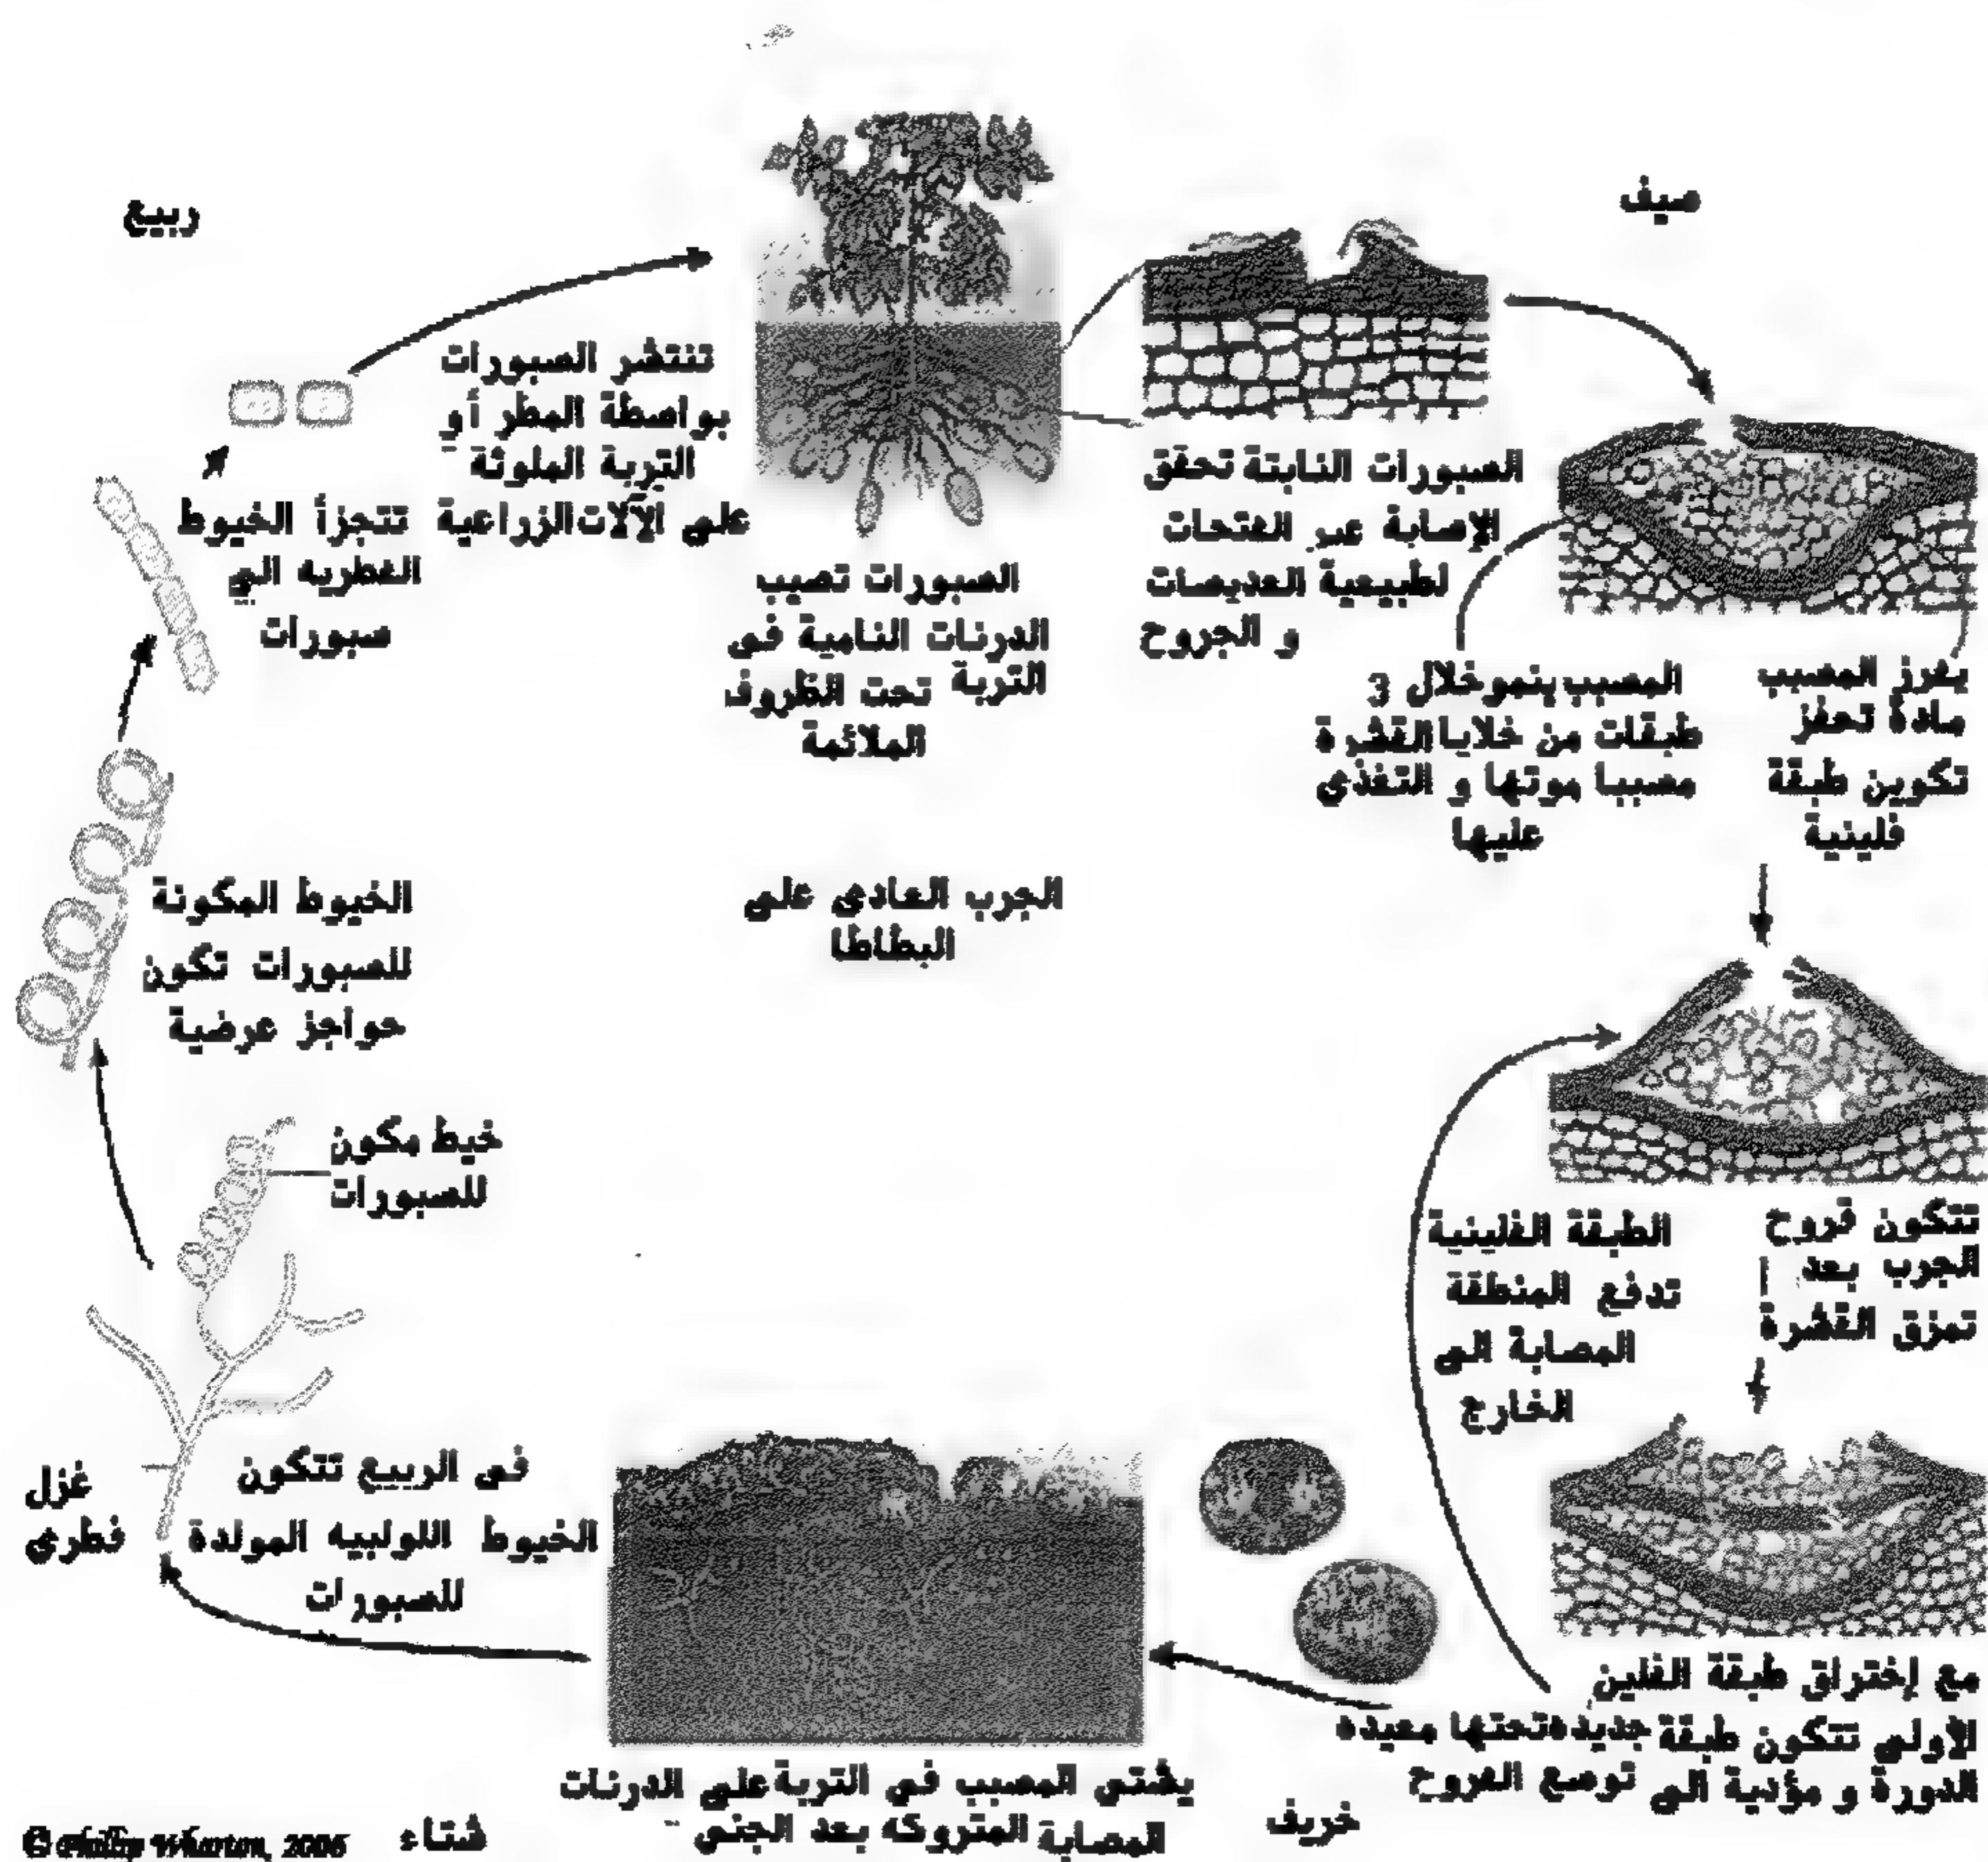 ربيع
صيف
تنتشر الصبورات
بواسطة المطر أو
التربة الملوثة
على الآلات الزراعية
تتجزأ الخيوط
الفطريه الي
صبورات
الصبورات تصيب
الدرنات النامية فى
التربة تحت الظروف
الملائمة
الصبورات النابتة تحقق
الإصابة عبر الفتحات
لطبيعية العديصات
و الجروح
المسبب ينمو خلال 3
طبقات من خلايا القشرة
مسببا موتها و التغذى
عليها
يفرز المسبب
مادة تحفز
تكوين طبقة
فلينية
الخيوط المكونة
للصبورات تكون
حواجز عرضية
الجرب العادى على
البطاطا
خيط مكون
للصبورات
الطبقة الفلينية
تدفع المنطقة
المصابة الى
الخارج
تتكون قروح
الجرب بعد
تمزق القشرة
غزل
فطري
فى الربيع تتكون
الخيوط اللولبيه المولدة
للصبورات
مع إختراق طبقة الفلين
الأولى تتكون طبقة جديده تحتها معيده
الدورة و مؤدية الى توسع القروح
يشتى المسبب فى التربة على الدرنات
المصابة المتروكه بعد الجنى
خريف
شتاء
© Phillip Wharton, 2006